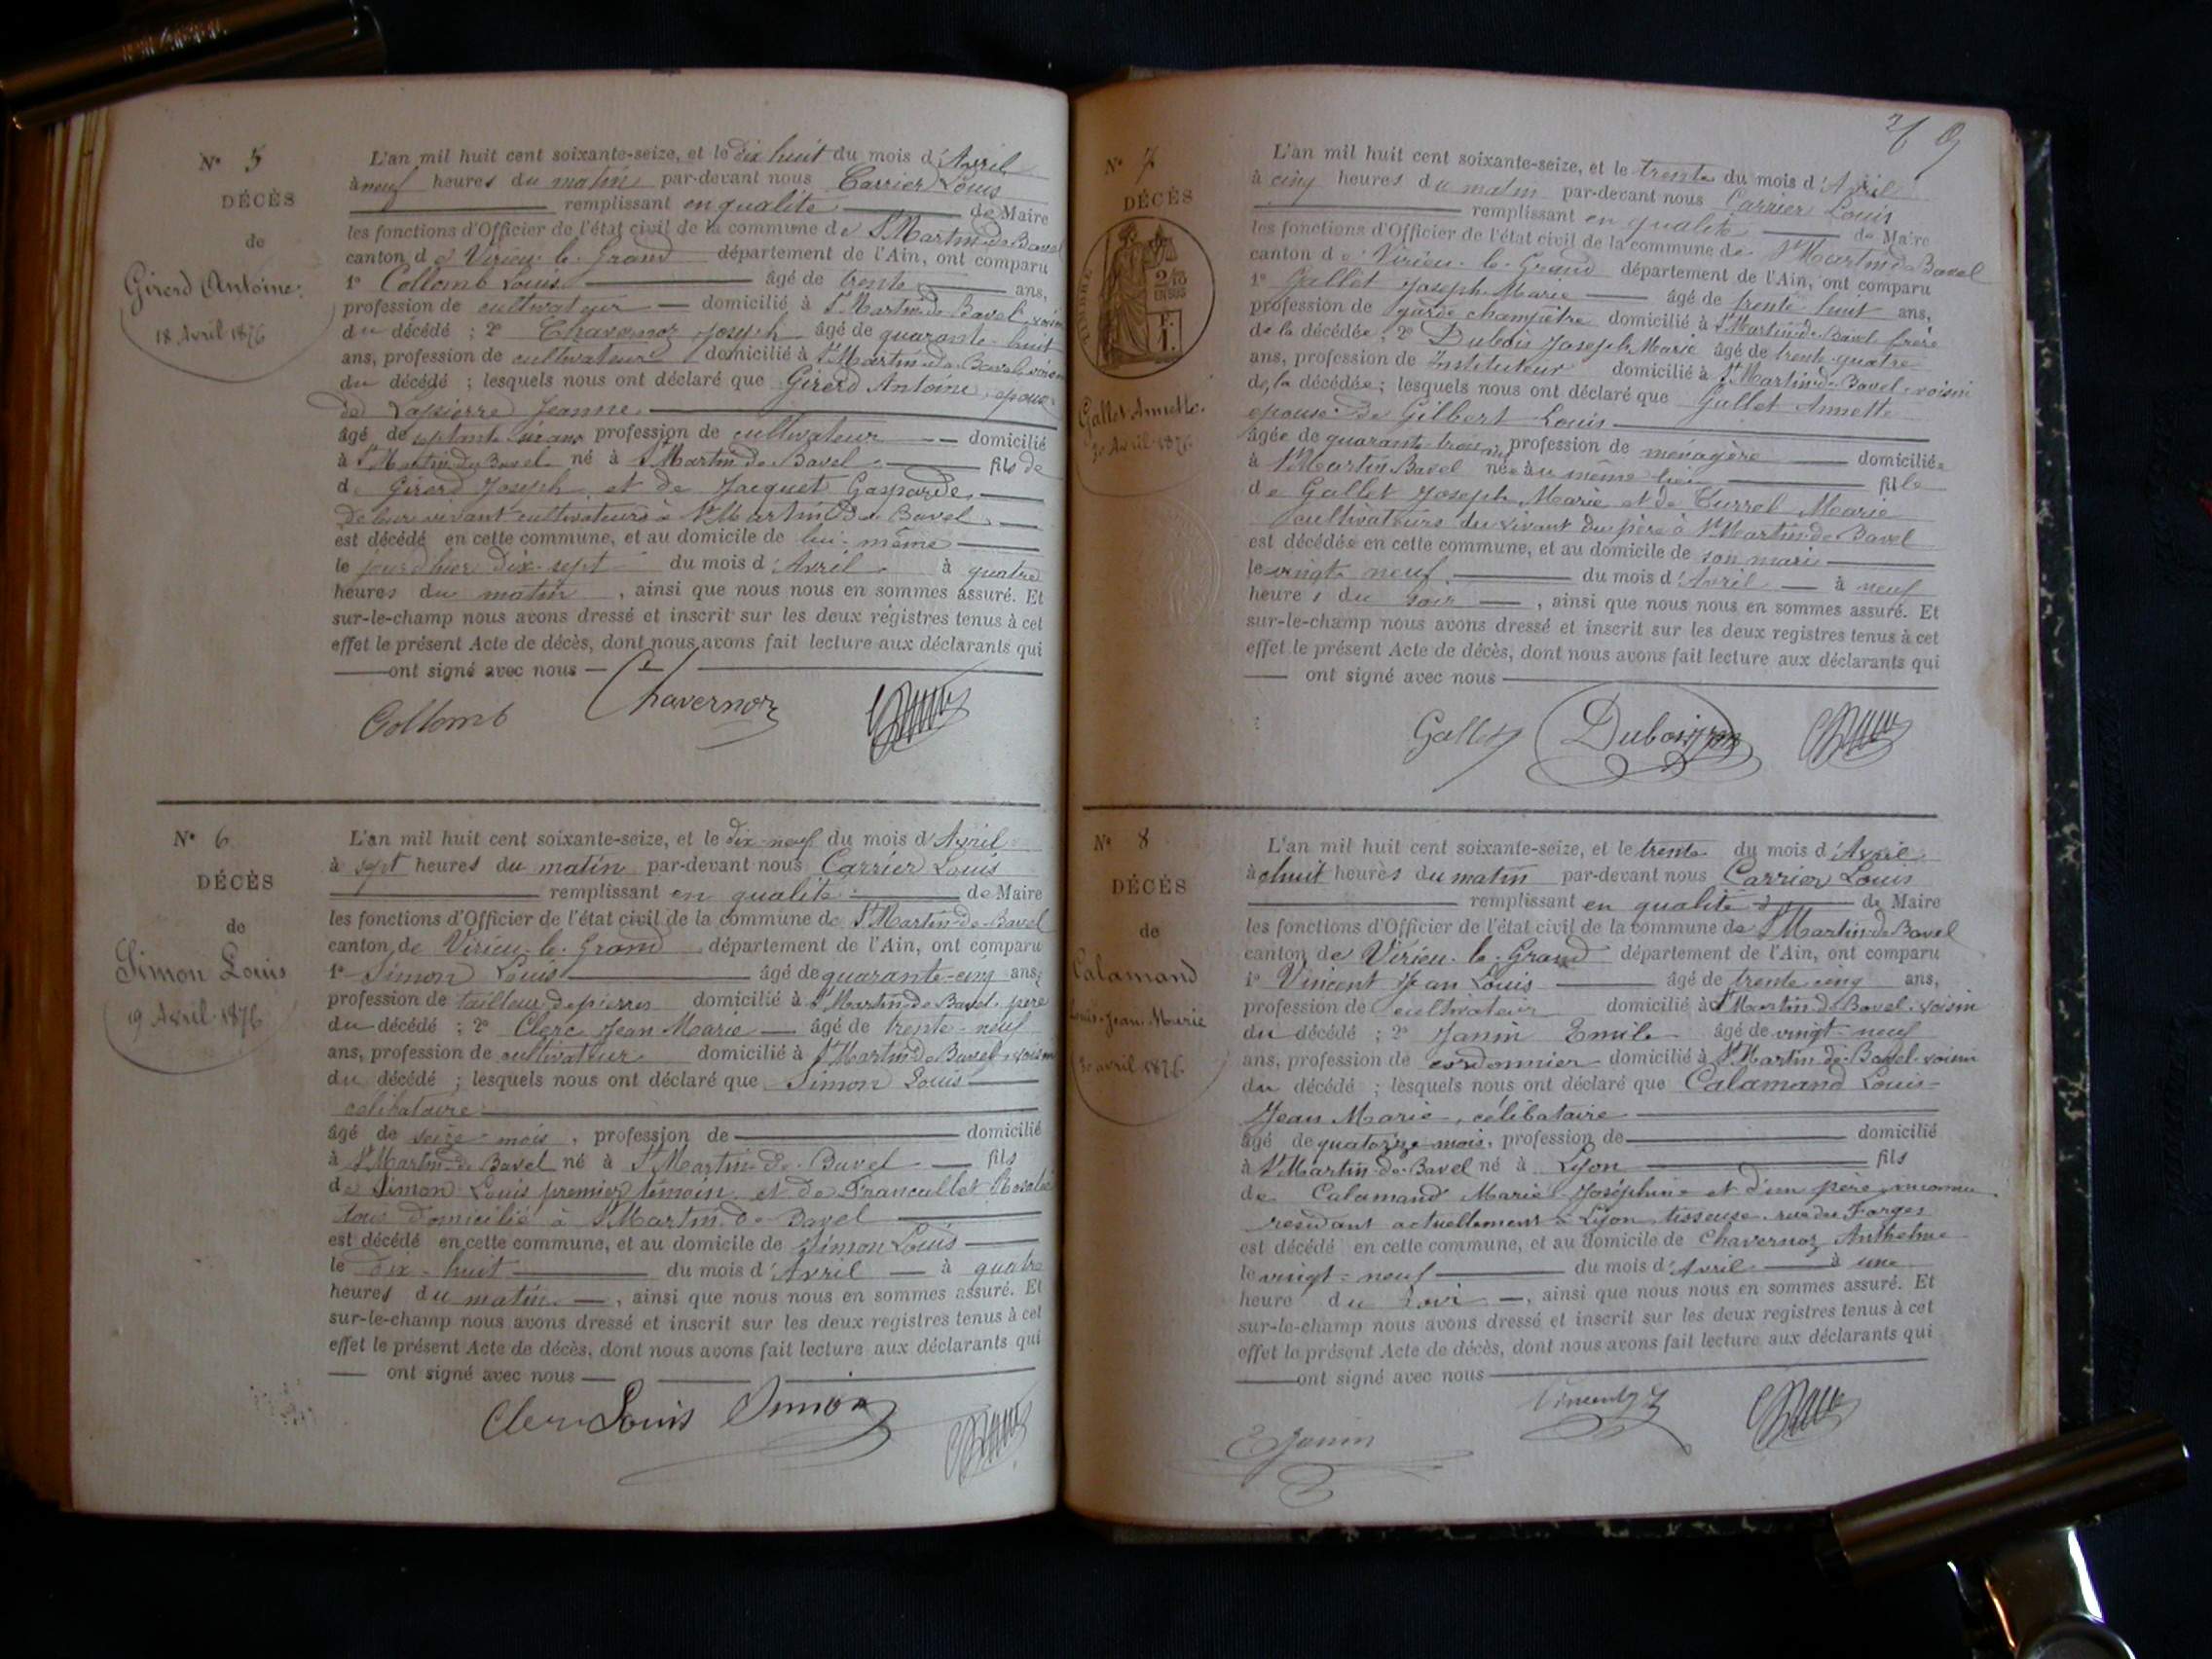 N° 5
DÉCÈS
de
Girerd Antoine
18 Avril 1876
L'an mil huit cent soixante-seize, et le dix huit du mois d'Avril
à neuf heures du matin par-devant nous Carrier Louis
remplissant en qualité de Maire
les fonctions d'Officier de l'état civil de la commune de St Martin de Bavel
canton de Virieu-le-Grand département de l'Ain, ont comparu
1° Collomb Louis âgé de trente ans,
profession de cultivateur domicilié à St Martin de Bavel voisin
du décédé ; 2° Chavernoz Joseph âgé de quarante-huit
ans, profession de cultivateur domicilié à St Martin de Bavel voisin
du décédé ; lesquels nous ont déclaré que Girerd Antoine, époux
de Lapierre Jeanne
âgé de septante ans profession de cultivateur domicilié
à St Martin de Bavel né à St Martin de Bavel fils de
de Girerd Joseph et de Jacquet Gasparde
de leur vivant cultivateurs à St Martin de Bavel
est décédé en cette commune, et au domicile de lui-même
le jour d'hier dix-sept du mois d'Avril à quatre
heures du matin, ainsi que nous nous en sommes assuré. Et
sur-le-champ nous avons dressé et inscrit sur les deux registres tenus à cet
effet le présent Acte de décès, dont nous avons fait lecture aux déclarants qui
ont signé avec nous
Collomb Chavernoz
N° 6
DÉCÈS
de
Simon Louis
19 Avril 1876
L'an mil huit cent soixante-seize, et le dix-neuf du mois d'Avril
à sept heures du matin par-devant nous Carrier Louis
remplissant en qualité de Maire
les fonctions d'Officier de l'état civil de la commune de St Martin-de-Bavel
canton de Virieu-le-Grand département de l'Ain, ont comparu
1° Simon Louis âgé de quarante-cinq ans,
profession de tailleur de pierres domicilié à St Martin de Bavel père
du décédé ; 2° Clerc Jean Marie âgé de trente-neuf
ans, profession de cultivateur domicilié à St Martin-de-Bavel voisin
du décédé ; lesquels nous ont déclaré que Simon Louis
célibataire
âgé de seize mois, profession de domicilié
à St Martin-de-Bavel né à St Martin-de-Bavel fils
de Simon Louis premier témoin et de Francallet
tous domicilié à St Martin de Bavel
est décédé en cette commune, et au domicile de Simon Louis
le dix-huit du mois d'Avril à quatre
heures du matin, ainsi que nous nous en sommes assuré. Et
sur-le-champ nous avons dressé et inscrit sur les deux registres tenus à cet
effet le présent Acte de décès, dont nous avons fait lecture aux déclarants qui
ont signé avec nous
Clerc Louis Simon
N° 7
DÉCÈS
TIMBRE
2/10
EN SUS
Gallet Annette
30 Avril 1876
L'an mil huit cent soixante-seize, et le trente du mois d'Avril
à cinq heures du matin par-devant nous Carrier Louis
remplissant en qualité de Maire
les fonctions d'Officier de l'état civil de la commune de St Martin de Bavel
canton de Virieu-le-Grand département de l'Ain, ont comparu
1° Gallet Joseph Marie âgé de trente-huit ans,
profession de garde champêtre domicilié à St Martin de Bavel frère
de la décédée ; 2° Dubois Joseph Marie âgé de trente-quatre
ans, profession de Instituteur domicilié à St Martin-de-Bavel voisin
de la décédée ; lesquels nous ont déclaré que Gallet Annette
épouse de Gilbert Louis
âgée de quarante-trois ans profession de ménagère domiciliée
à St Martin Bavel née au même lieu fille
de Gallet Joseph Marie et de Turrel Marie
cultivateurs du vivant du père à St Martin-de-Bavel
est décédée en cette commune, et au domicile de son mari
le vingt neuf du mois d'Avril à neuf
heures du soir, ainsi que nous nous en sommes assuré. Et
sur-le-champ nous avons dressé et inscrit sur les deux registres tenus à cet
effet le présent Acte de décès, dont nous avons fait lecture aux déclarants qui
ont signé avec nous
Gallet Dubois
N° 8
DÉCÈS
de
Calamand
Louis-Jean-Marie
30 avril 1876
L'an mil huit cent soixante-seize, et le trente du mois d'Avril
à huit heures du matin par-devant nous Carrier Louis
remplissant en qualité de Maire
les fonctions d'Officier de l'état civil de la commune de St Martin de Bavel
canton de Virieu-le-Grand département de l'Ain, ont comparu
1° Vincent Jean Louis âgé de trente cinq ans,
profession de cultivateur domicilié à St Martin de Bavel voisin
du décédé ; 2° Janin Emile âgé de vingt-neuf
ans, profession de cordonnier domicilié à St Martin de Bavel voisin
du décédé ; lesquels nous ont déclaré que Calamand Louis-
Jean Marie, célibataire
âgé de quatorze mois, profession de domicilié
à St Martin-de-Bavel né à Lyon fils
de Calamand Marie-Joséphine et d'un père inconnu
résidant actuellement à Lyon tisseuse rue des Farges
est décédé en cette commune, et au domicile de Chavernoz Anthelme
le vingt-neuf du mois d'Avril à une
heure du soir, ainsi que nous nous en sommes assuré. Et
sur-le-champ nous avons dressé et inscrit sur les deux registres tenus à cet
effet le présent Acte de décès, dont nous avons fait lecture aux déclarants qui
ont signé avec nous
Vincent
E Janin